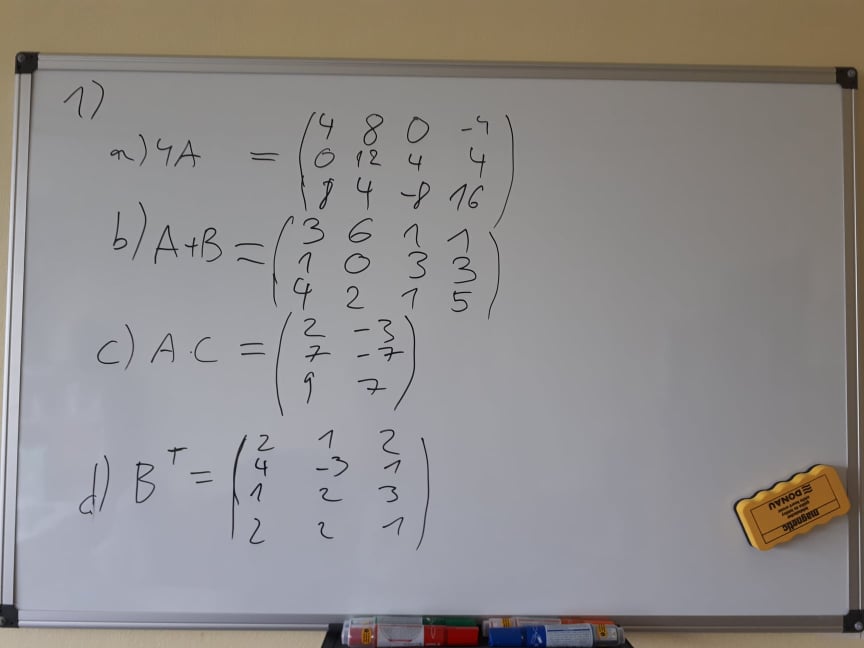 1)
a) 4A = (4 8 0 -4
0 12 4 4
8 4 -8 16)
b) A+B = (3 6 1 1
1 0 3 3
4 2 1 5)
c) A·C = (2 -3
7 -7
9 7)
d) B^T = (2 1 2
4 -3 1
1 2 3
2 2 1)
magnetic
DONAU